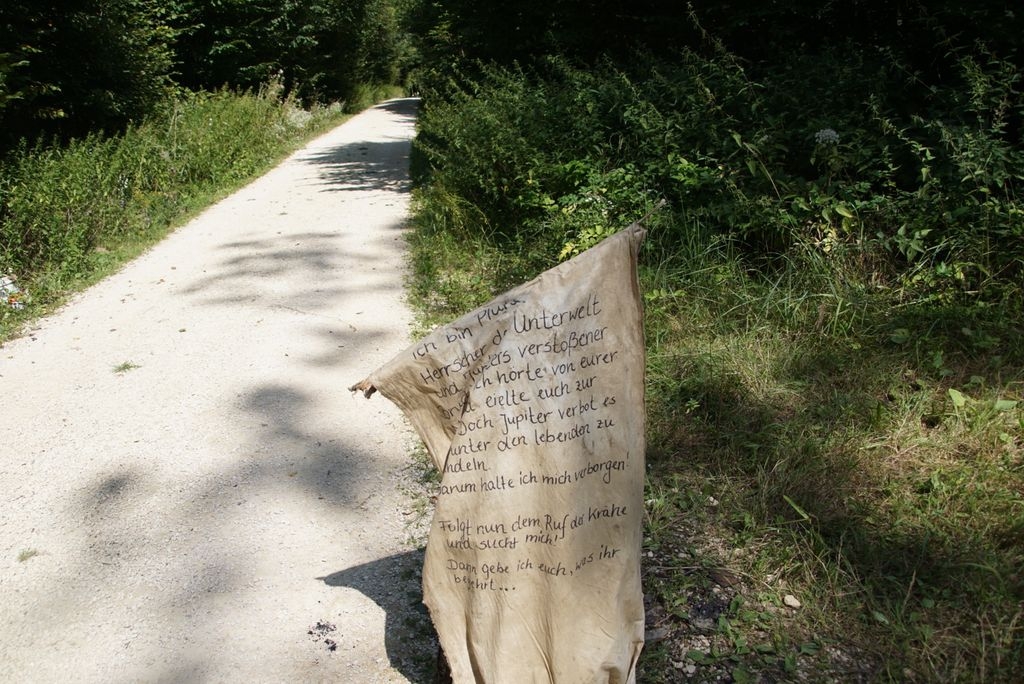 ich bin Pluto
Herrscher d. Unterwelt
und Jupiters verstoßener
ich hörte von eurer
eielte euch zur
Doch Jupiter verbot es
unter den lebenden zu
ndeln.
arum halte ich mich verborgen!
Folgt nun dem Ruf der Krähe
und sucht mich!
Dann gebe ich euch, was ihr
begehrt...